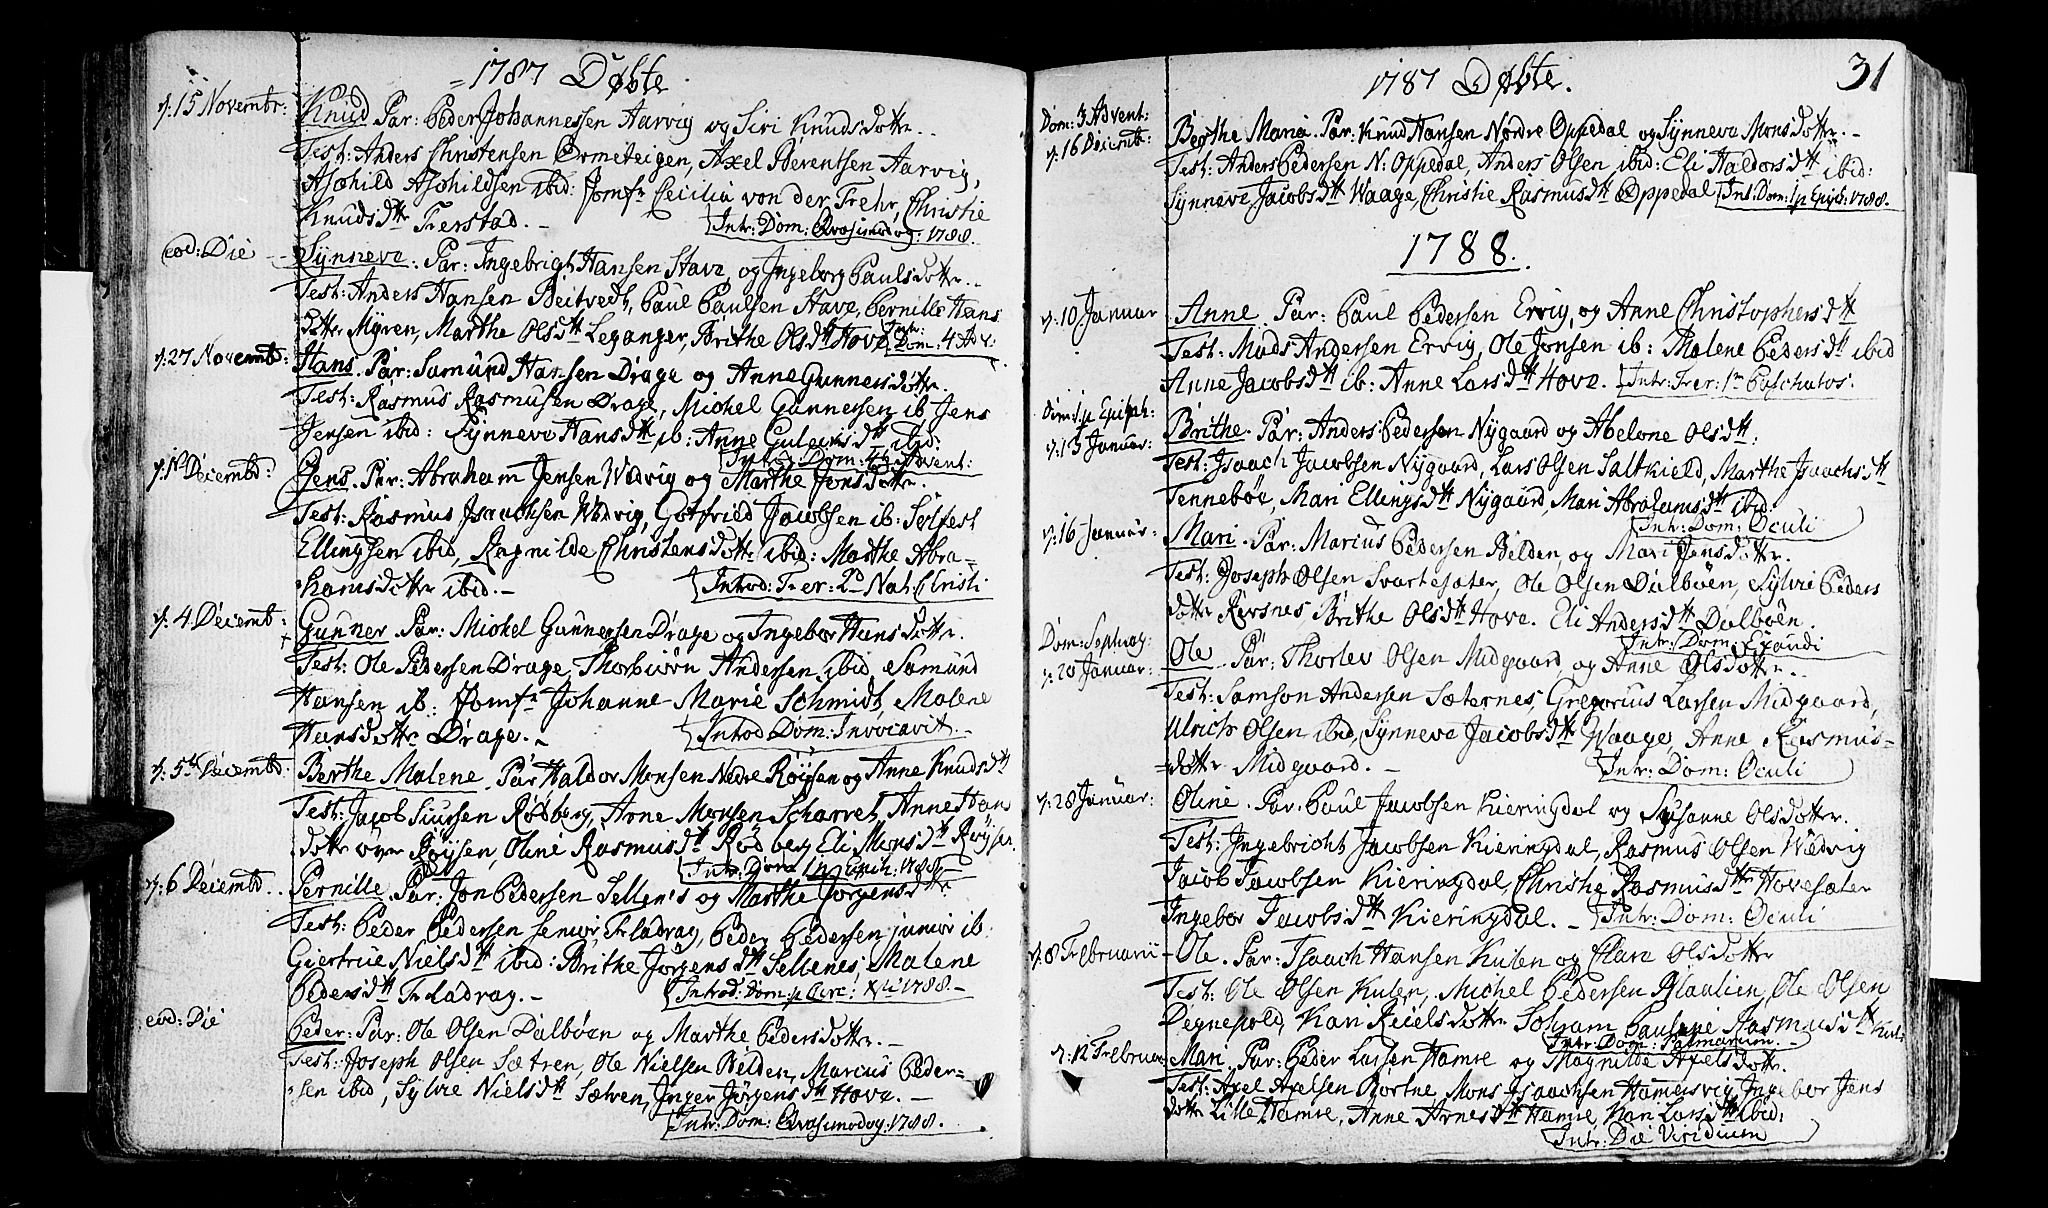 1787 Døbte
d: 15 Novembr: Knud Par: Peder Johannessen Aarvig og Siri Knudsdottr.
Test: Anders Christensen Ormeteigen, Axel Berentsen Aarvig,
Aschild Aschildsen ibid: Jomfr Cecilia von der Fehr, Christie
Knudsdttr Ferstad. Intr: Dom: Qvasimodog: 1788.
eod: Die Synneve. Par: Ingebrigt Hansen Stave og Ingeborg Paulsdottr.
Test: Anders Hansen Beitvedt, Paul Paulsen Stave, Pernille Hans
dottr Myren, Marthe Olsdtt Leganger, Brithe Olsdtt Hove Intr: Dom: 4 Adv:
d: 27 Novembr: Hans. Par: Samund Hansen Drage og Anne Gunnersdottr.
Test: Rasmus Rasmusen Drage, Michel Gunnersen ib Jens
Jensen ibid: Synneve Hansdtt ib: Anne Guleivsdtt ibid:
Intr: Dom: 4ta Advent:
d: 1ste Decembr: Jens. Par: Abraham Jensen Wedvig og Marthe Jonsdottr.
Test: Rasmus Isachsen Wedvig, Gotfried Jacobsen ib: Solfest
Ellingsen ibid, Ragnilde Christensdottr ibid: Marthe Abra-
hamsdottr ibid. Introd: Fer: 2da Nat: Christi
d: 4 Decembr: Gunner. Par: Michel Gunnersen Drage og Ingebor Hansdottr.
Test: Ole Pedersen Drage, Thorbiørn Andersen ibid, Samund
Hansen ib: Jomfr Johanne Marie Schmidt, Malene
Hansdottr Drage. Introd Dom: Invocavit.
d: 5te Decembr: Berthe Malene. Par Haldor Monsen Nedre Røysen og Anne Knudsdtt
Test: Jacob Siursen Rødberg, Arne Monsen Scharvet, Anne Hans
dottr øvre Røysen, Oline Rasmusdtt Rødberg Eli Monsdtt Røysen.
Intr: Dom 1 p Epiph: 1788.
d: 6 Decembr. Pernille. Par: Jon Pedersen Sellenes og Marthe Jørgensdttr
Test: Peder Pedersen senior, Fladrag, Peder Pedersen junior ib:
Giertrue Nielsdtt ibid: Brithe Jørgensdtt Sellenes, Malene
Pedersdtt Fladrag. Introd: Dom: p Circ: Xsti 1788.
eod: Die Peder: Par: Ole Olsen Dalbøen og Marthe Pedersdottr.
Test: Joseph Olsen Sætren, Ole Nielsen Belden, Marius Peder-
sen ibid, Sylvie Nielsdtt Sætren, Inger Jørgensdtt Hove.
Intr: Dom: Qvasimodog: 1788.
1787 Døbte. 31
Dom: 3 Advent:
d: 16 Decembr: Berthe Maria. Par: Knud Hansen Nordre Oppedal og Synneve Monsdottr.
Test: Anders Pedersen N: Oppedal, Anders Olsen ibid: Eli Haldorsdtt ibid:
Synneve Jacobsdtt Waage, Christie Rasmusdtt Oppedal Int: Dom: 1 p Epiph: 1788.
1788.
d: 10 Januar Anne. Par: Paul Pedersen Ervig, og Anne Christophersdtt
Test: Mads Andersen Ervig, Ole Jonsen ib: Malene Pedersdtt ibid
Anne Jacobsdtt ib: Anne Larsdtt Hove. Intr: Fer: 1ma Paschatos.
Dom: 1 p Epiph:
d: 13 Januar: Brithe. Par: Anders Pedersen Nygaard og Abelone Olsdtt:
Test: Isaach Jacobsen Nygaard, Lars Olsen Saltkield, Marthe Isaachsdtt
Tennebøe, Mari Ellingsdtt Nygaard, Mari Abrahamsdtt ibid:
Intr: Dom: Oculi
d: 16 Januar: Mari. Par: Marius Pedersen Belden, og Mari Jensdottr.
Test: Joseph Olsen Svartesæter, Ole Olsen Dalbøen, Sylvie Peders
dottr Rersnes Brithe Olsdtt Hove. Eli Andersdtt Dalbøen.
Intr: Dom: Exaudi
Dom: Septuag:
d: 20 Januar: Ole. Par: Thorlev Olsen Midgaard og Anne Olsdottr.
Test: Samson Andersen Sæternes, Gregorius Larsen Midgaard,
Ulrich Olsen ibid, Synneve Jacobsdtt Waage, Anne Rasmus-
dottr Midgaard. Intr: Dom: Oculi
d: 28 Januar: Oline. Par. Paul Jacobsen Kieringdal og Susanne Olsdottr.
Test: Ingebricht Jacobsen Kieringdal, Rasmus Olsen Wedvig
Jacob Jacobsen Kieringdal, Christie Rasmusdttr Hovesæter
Ingebor Jacobsdtt Kieringdal. Intr: Dom: Oculi
d: 8 Februarii Ole. Par: Isaach Hansen Kulen og Clare Olsdottr
Test: Ole Olsen Kulen, Michel Pedersen Blaalien, Ole Olsen
Degnepold, Kari Reielsdottr Solram Pauline Rasmusdtt Kul:
Intr: Dom: Palmarum.
d: 12 Februar Mari. Par: Peder Larsen Hamre og Magnilde Axelsdottr.
Test: Axel Axelsen Bortne, Mons Isaachsen Hammersvig, Ingebor Jens
dottr Lille Hamre, Anne Arnesdtt Hamre, Kari Larsdtt ibid:
Intr: Die Viridium